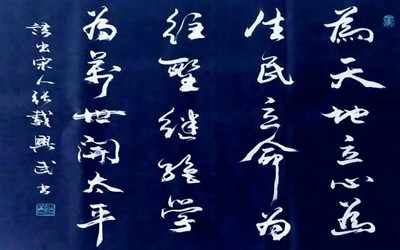 為天地立心為
生民立命為
往聖继绝学
為萬世開太平
語出宋人张載興武书